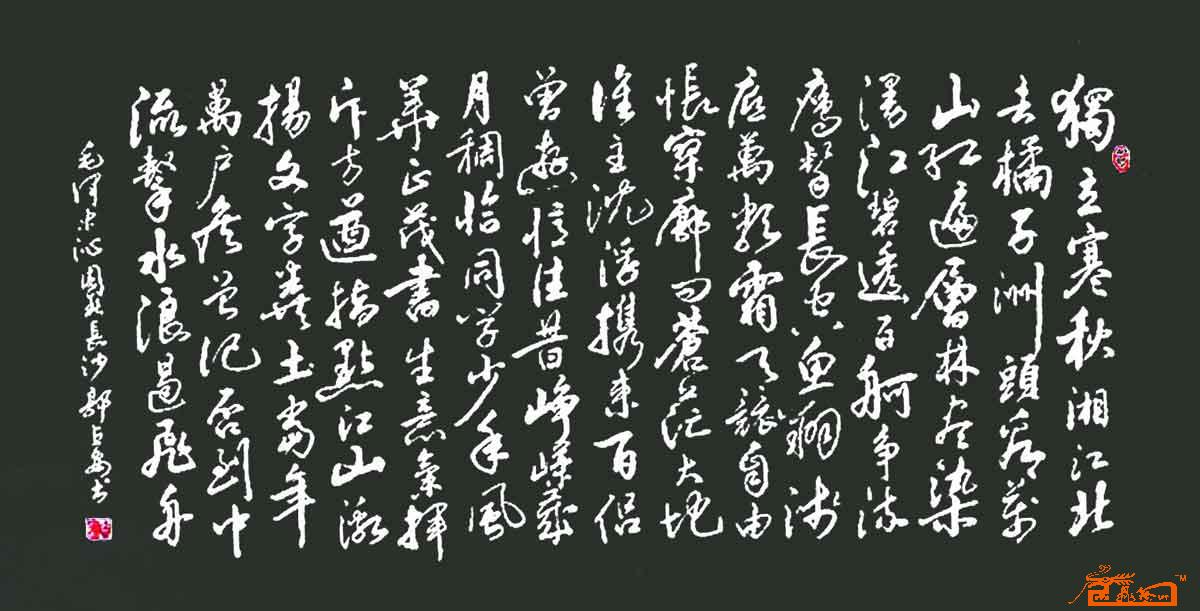 獨立寒秋湘江北
去橘子洲頭看萬
山紅遍層林尽染
漫江碧透百舸争流
鹰擊長空魚翔浅
底萬類霜天競自由
悵寥廓問蒼茫大地
誰主沈浮攜來百侣
曾遊憶往昔崢嶸歲
月稠恰同学少年風
華正茂書生意氣揮
斥方遒指點江山激
揚文字糞土當年
萬户侯曾記否到中
流擊水浪遏飛舟
毛澤東沁園春長沙